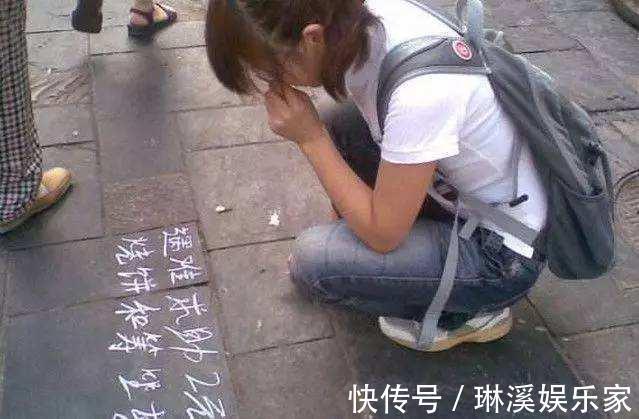 遇难求帅2元
烧饼和筹
快传号 / 琳溪娱乐家